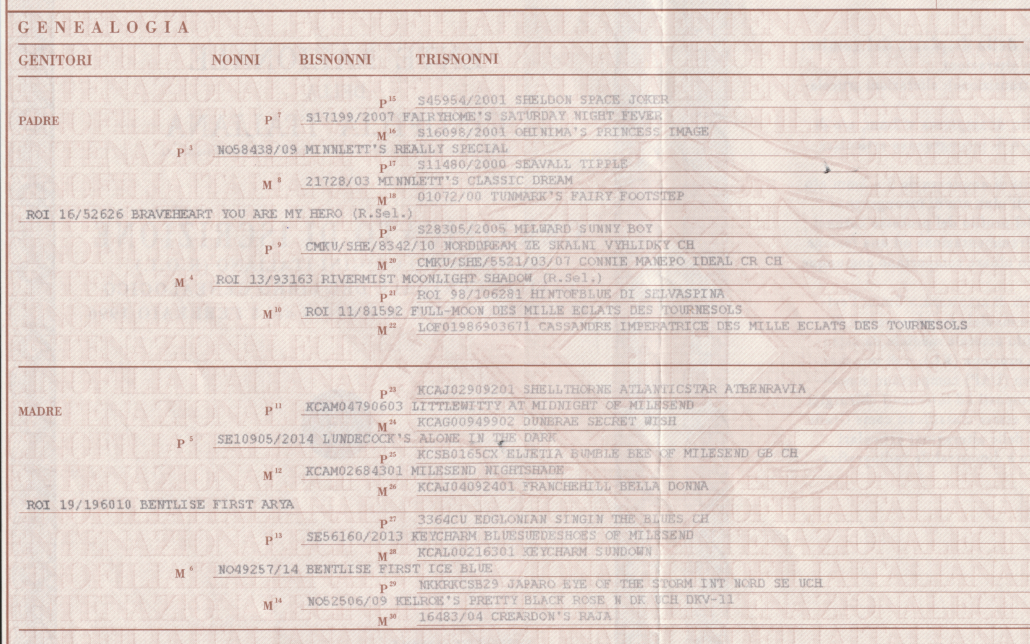 GENEALOGIA
GENITORI NONNI BISNONNI TRISNONNI
P15 S45954/2001 SHELDON SPACE JOKER
PADRE P7 S17199/2007 FAIRYHOME'S SATURDAY NIGHT FEVER
M16 S16098/2001 OHINIMA'S PRINCESS IMAGE
P3 NO58438/09 MINNLETT'S REALLY SPECIAL
P17 S11480/2000 SEAVALL TIPPLE
M8 21728/03 MINNLETT'S CLASSIC DREAM
M18 01072/00 TUNMARK'S FAIRY FOOTSTEP
ROI 16/52626 BRAVEHEART YOU ARE MY HERO (R.Sel.)
P19 S28305/2005 MILWARD SUNNY BOY
P9 CMKU/SHE/8342/10 NORDDREAM ZE SKALNI VYHLIDKY CH
M20 CMKU/SHE/5521/03/07 CONNIE MANEPO IDEAL CR CH
M4 ROI 13/93163 RIVERMIST MOONLIGHT SHADOW (R.Sel.)
P21 ROI 98/106281 HINTOFBLUE DI SELVASPINA
M10 ROI 11/81592 FULL-MOON DES MILLE ECLATS DES TOURNESOLS
M22 LOF01986903671 CASSANDRE IMPERATRICE DES MILLE ECLATS DES TOURNESOLS
P23 KCAJ02909201 SHELLTHORNE ATLANTICSTAR ATHENRAVIA
MADRE P11 KCAM04790603 LITTLEWITTY AT MIDNIGHT OF MILESEND
M24 KCAG00949902 DUNBRAE SECRET WISH
P5 SE10905/2014 LUNDECOCK'S ALONE IN THE DARK
P25 KCSB0165CX ELJETIA BUMBLE BEE OF MILESEND GB CH
M12 KCAM02684301 MILESEND NIGHTSHADE
M26 KCAJ04092401 FRANCHEHILL BELLA DONNA
ROI 19/196010 BENTLISE FIRST ARYA
P27 3364CU EDGLONIAN SINGIN THE BLUES CH
P13 SE56160/2013 KEYCHARM BLUESUEDESHOES OF MILESEND
M28 KCAL00216301 KEYCHARM SUNDOWN
M6 NO49257/14 BENTLISE FIRST ICE BLUE
P29 NKKRKCSB29 JAPARO EYE OF THE STORM INT NORD SE UCH
M14 NO52506/09 KELROE'S PRETTY BLACK ROSE N DK UCH DKV-11
M30 16483/04 CREARDON'S RAJA